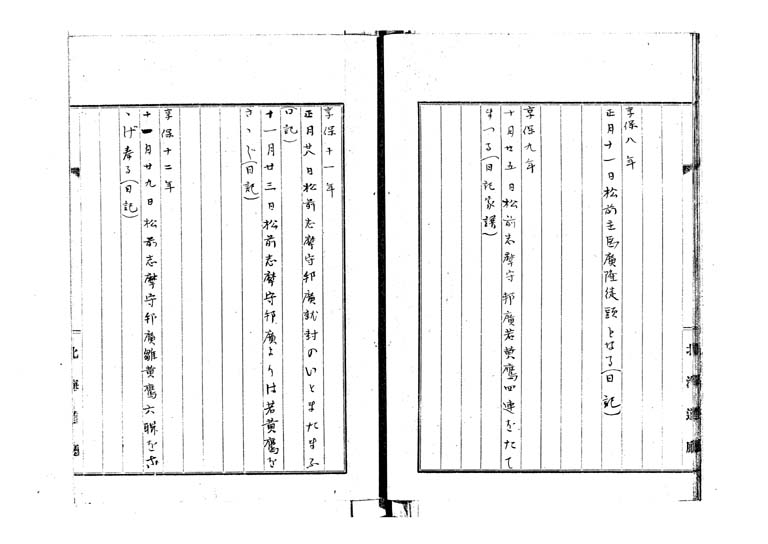 享保八年
正月十一日松前主馬廣隆徒頭となる(日記)
享保九年
十月廿五日松前志摩守邦廣若黄鷹四連をたて
まつる(日記家譜)
北海道廳
享保十一年
正月廿八日松前志摩守邦廣就封のいとまたまふ
(日記)
十一月廿三日松前志摩守邦廣よりは若黄鷹を
さゝぐ(日記)
享保十二年
十一月廿九日松前志摩守邦廣雛黄鷹六聯をさ
ゝげ奉る(日記)
北海道廳